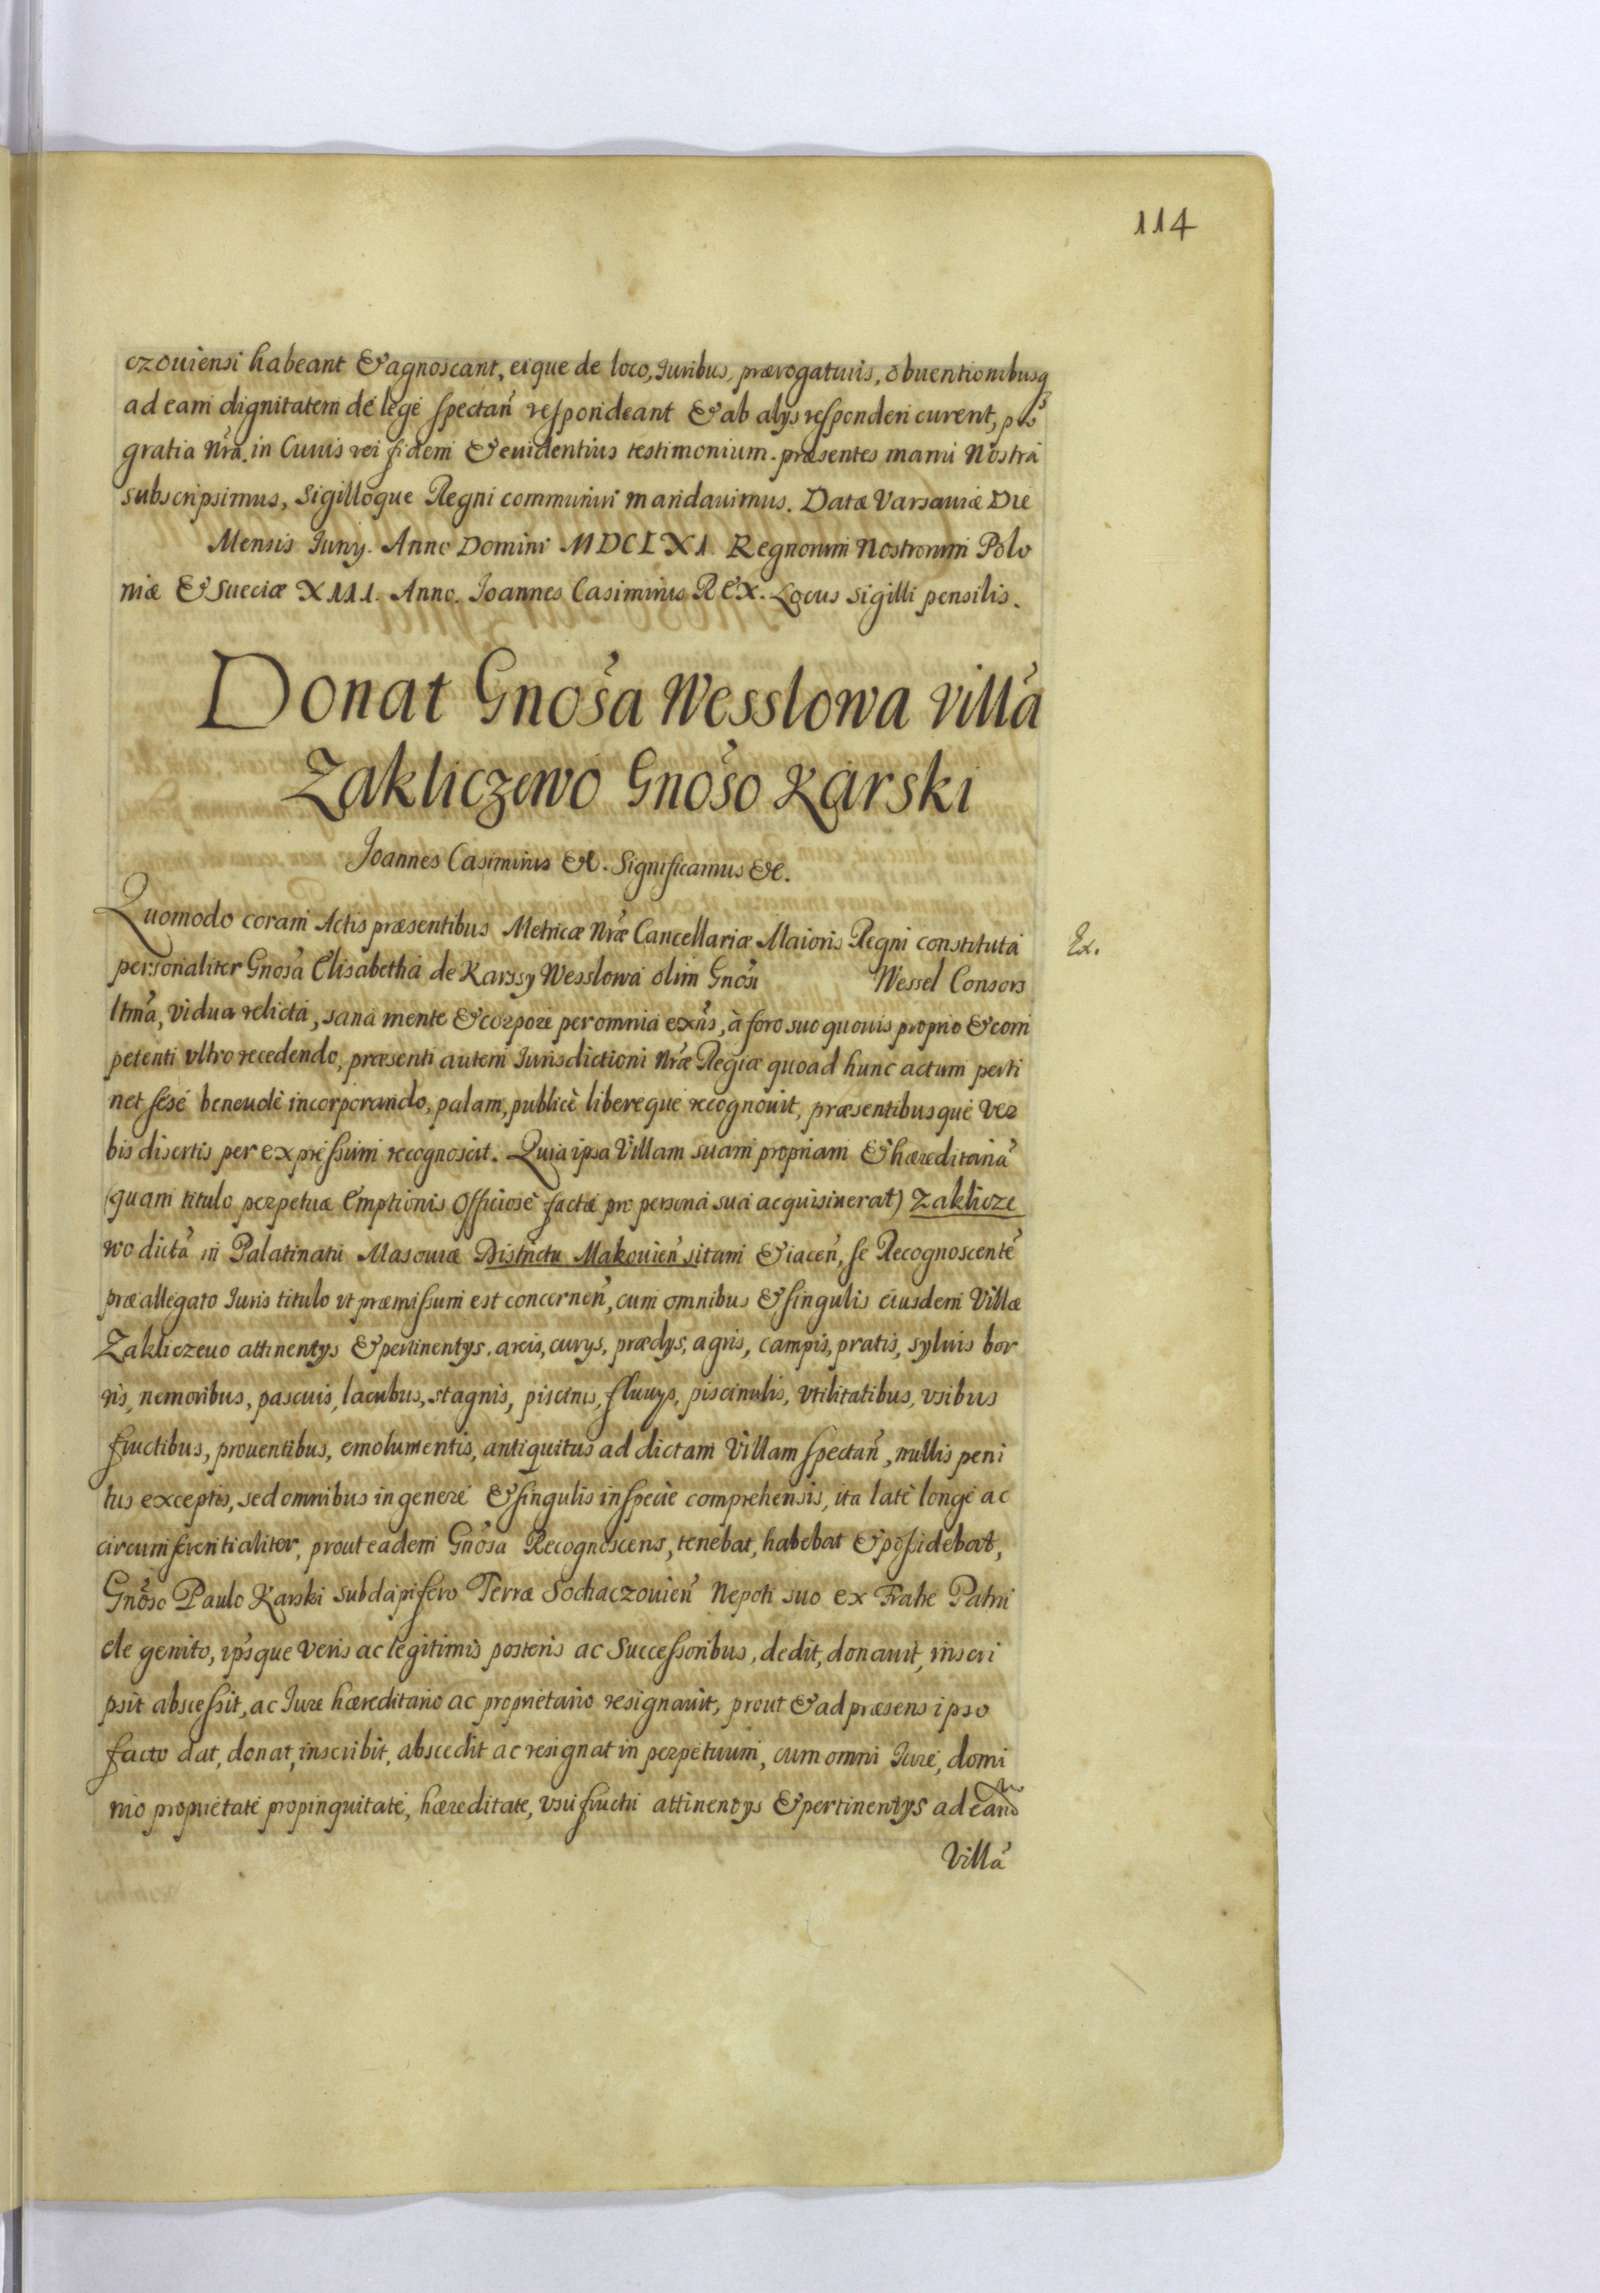 114
czouiensi habeant & agnoscant, eique de loco, Iuribus, prærogatiuis, obuentionibusq
ad eam dignitatem de lege spectañ respondeant & ab alys responderi curent, pro
gratia Nrã. in Cuius rei fidem & euidentius testimonium. præsentes manu Nostra
subscripsimus, Sigilloque Regni communiri mandauimus. Datæ Varsauiæ Die
Mensis Iuny. Anno Domini MDCLXI. Regnorum Nostrorum Polo
niæ & Sueciæ XIII. Anno. Ioannes Casimirus REX. Locus Sigilli pensilis.
Donat Gnosa Wesslowa villã
Zakliczewo Gnoso Karski
Ioannes Casimirus &c. Significamus &c.
Quomodo coram Actis præsentibus Metricæ Nræ Cancellariæ Maioris Regni constituta
Ex.
personaliter Gnosa Elisabetha de Karssy Wesslowa olim Gnosi Wessel Consors
ltma, vidua relicta, sana mente & corpore per omnia exñs, à foro suo quouis proprio & com
petenti vltro recedendo, præsenti autem Iurisdictioni Nræ Regiæ quoad hunc actum perti
net sese beneuolè incorporando, palam, publicè libereque recognouit, præsentibusque ver
bis disertis per expressum recognoscit. Quia ipsa Villam suam propriam & hæreditariã
(quam titulo perpetuæ Emptionis Officiosè factæ pro persona sua acquisiuerat) Zaklicze
wo dictã in Palatinatu Masouiæ Districtu Makouieñ sitam & iaceñ, se Recognoscentẽ
præallegato Iuris titulo vt præmissum est concerneñ, cum omnibus & singulis eiusdem Villæ
Zakliczeuo attinentys & pertinentys, areis, curys, prædys, agris, campis, pratis, syluis bor
ris, nemoribus, pascuis, lacubus, stagnis, piscinis, fluuys, piscinulis, vtilitatibus, vsibus
fructibus, prouentibus, emolumentis, antiquitus ad dictam Villam spectañ, nullis peni
tus exceptis, sed omnibus in genere & singulis in specie comprehensis, ita latè longè ac
circumferentialiter, prout eadem Gnosa Recognoscens, tenebat, habebat & possidebat,
Gnoso Paulo Karski Subdapifero Terræ Sochaczouieñ Nepoti suo ex Fratre Patru
ele genito, ipsque veris ac legitimis posteris ac Successoribus, dedit, donauit, inscri
psit abscessit, ac Iure hæreditario ac proprietario resignauit, prout & ad præsens ipso
facto dat, donat, inscribit, abscedit ac resignat in perpetuum, cum omni Iure, domi
nio proprietate propinquitate, hæreditate, vsu fructu attinentys & pertinentys ad eand
Villã